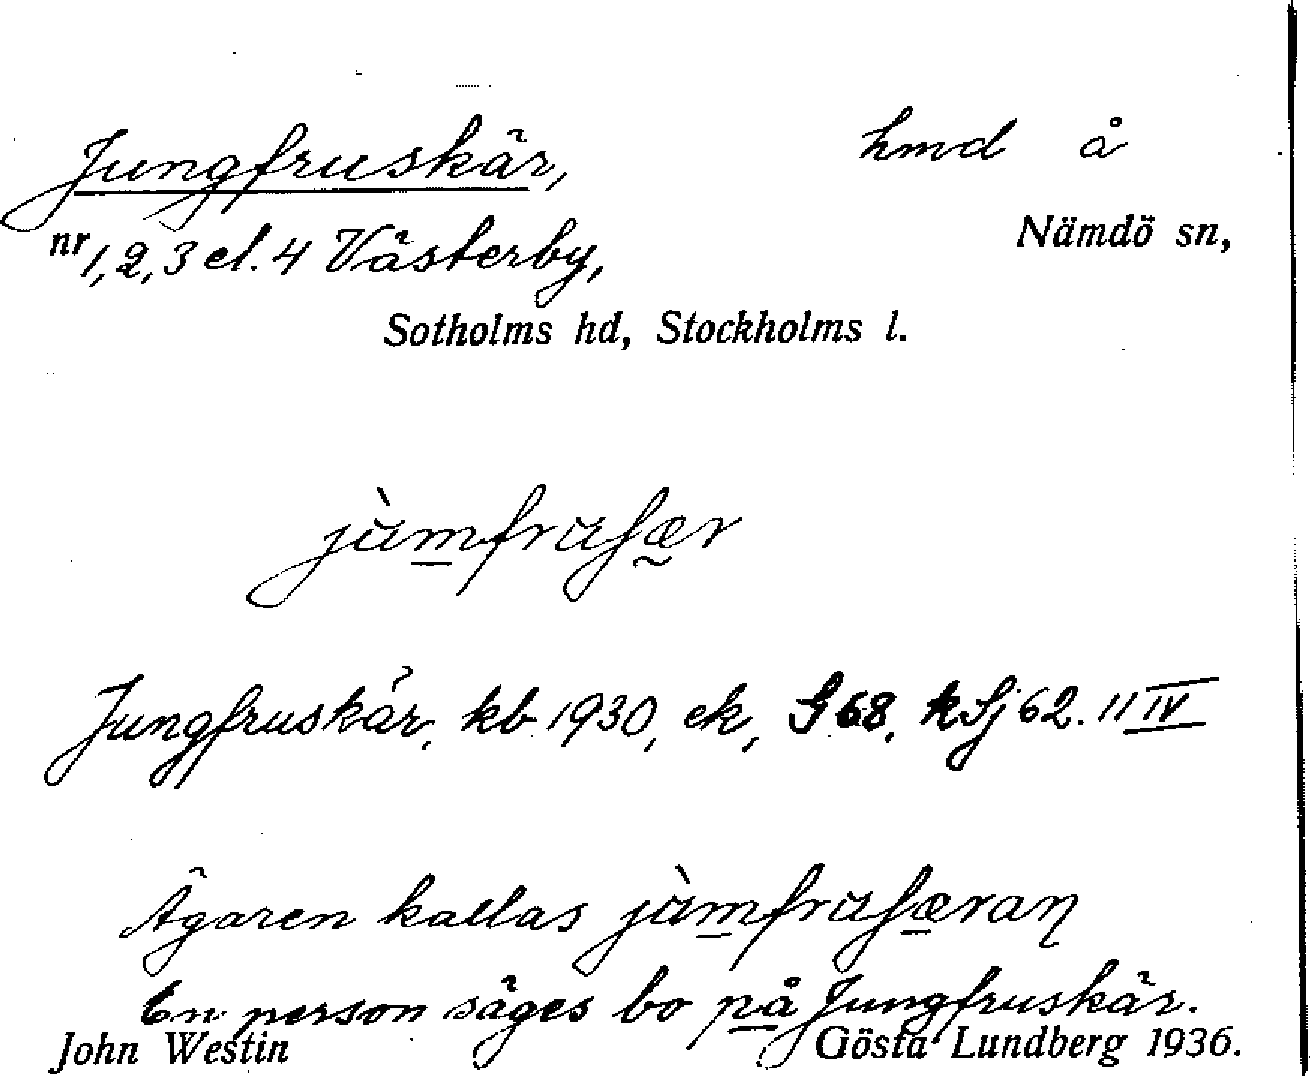 Jungfruskär, hmd å
nr 1, 2, 3 el. 4 Västerby, Nämdö sn,
Sotholms hd, Stockholms l.
Jungfruskär, kb 1930, ek, G 68, k Sj 62. 11 IV
Ägaren kallas
En person säges bo på Jungfruskär.
John Westin Gösta Lundberg 1936.